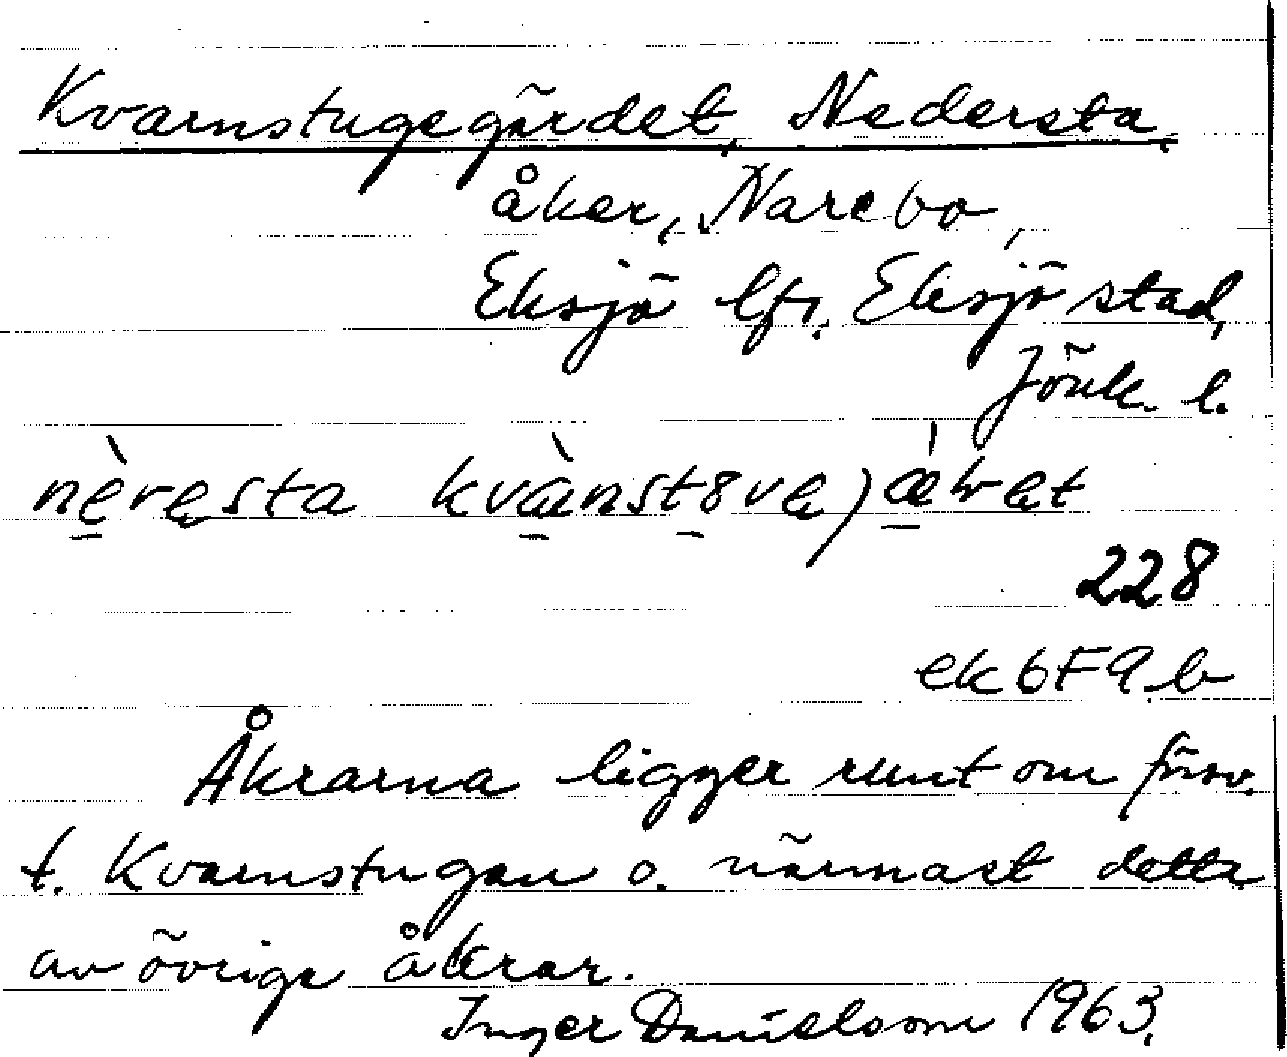 Kvarnstugegärdet, Nedersta,
åker, Narebo,
Eksjö lfs. Eksjö stad,
Jönk. l.
nèresta
228
ek 6F9b
Åkrarna ligger runt om försv.
t. Kvarnstugan o. närmast detta
av övriga åkrar.
Inger Danielsson 1963.